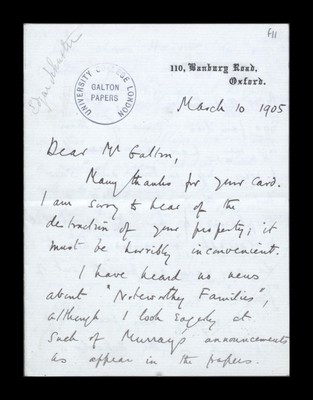 f11
UNIVERSITY COLLEGE LONDON
GALTON
PAPERS
110, Banbury Road,
Oxford.
March 10 1905
Dear Mr Galton,
Many thanks for your card.
I am sorry to hear of the
destruction of your property; it
must be horribly inconvenient.
I have heard no news
about "Noteworthy Families",
although I look eagerly at
such of Murray's announcements
as appear in the papers.